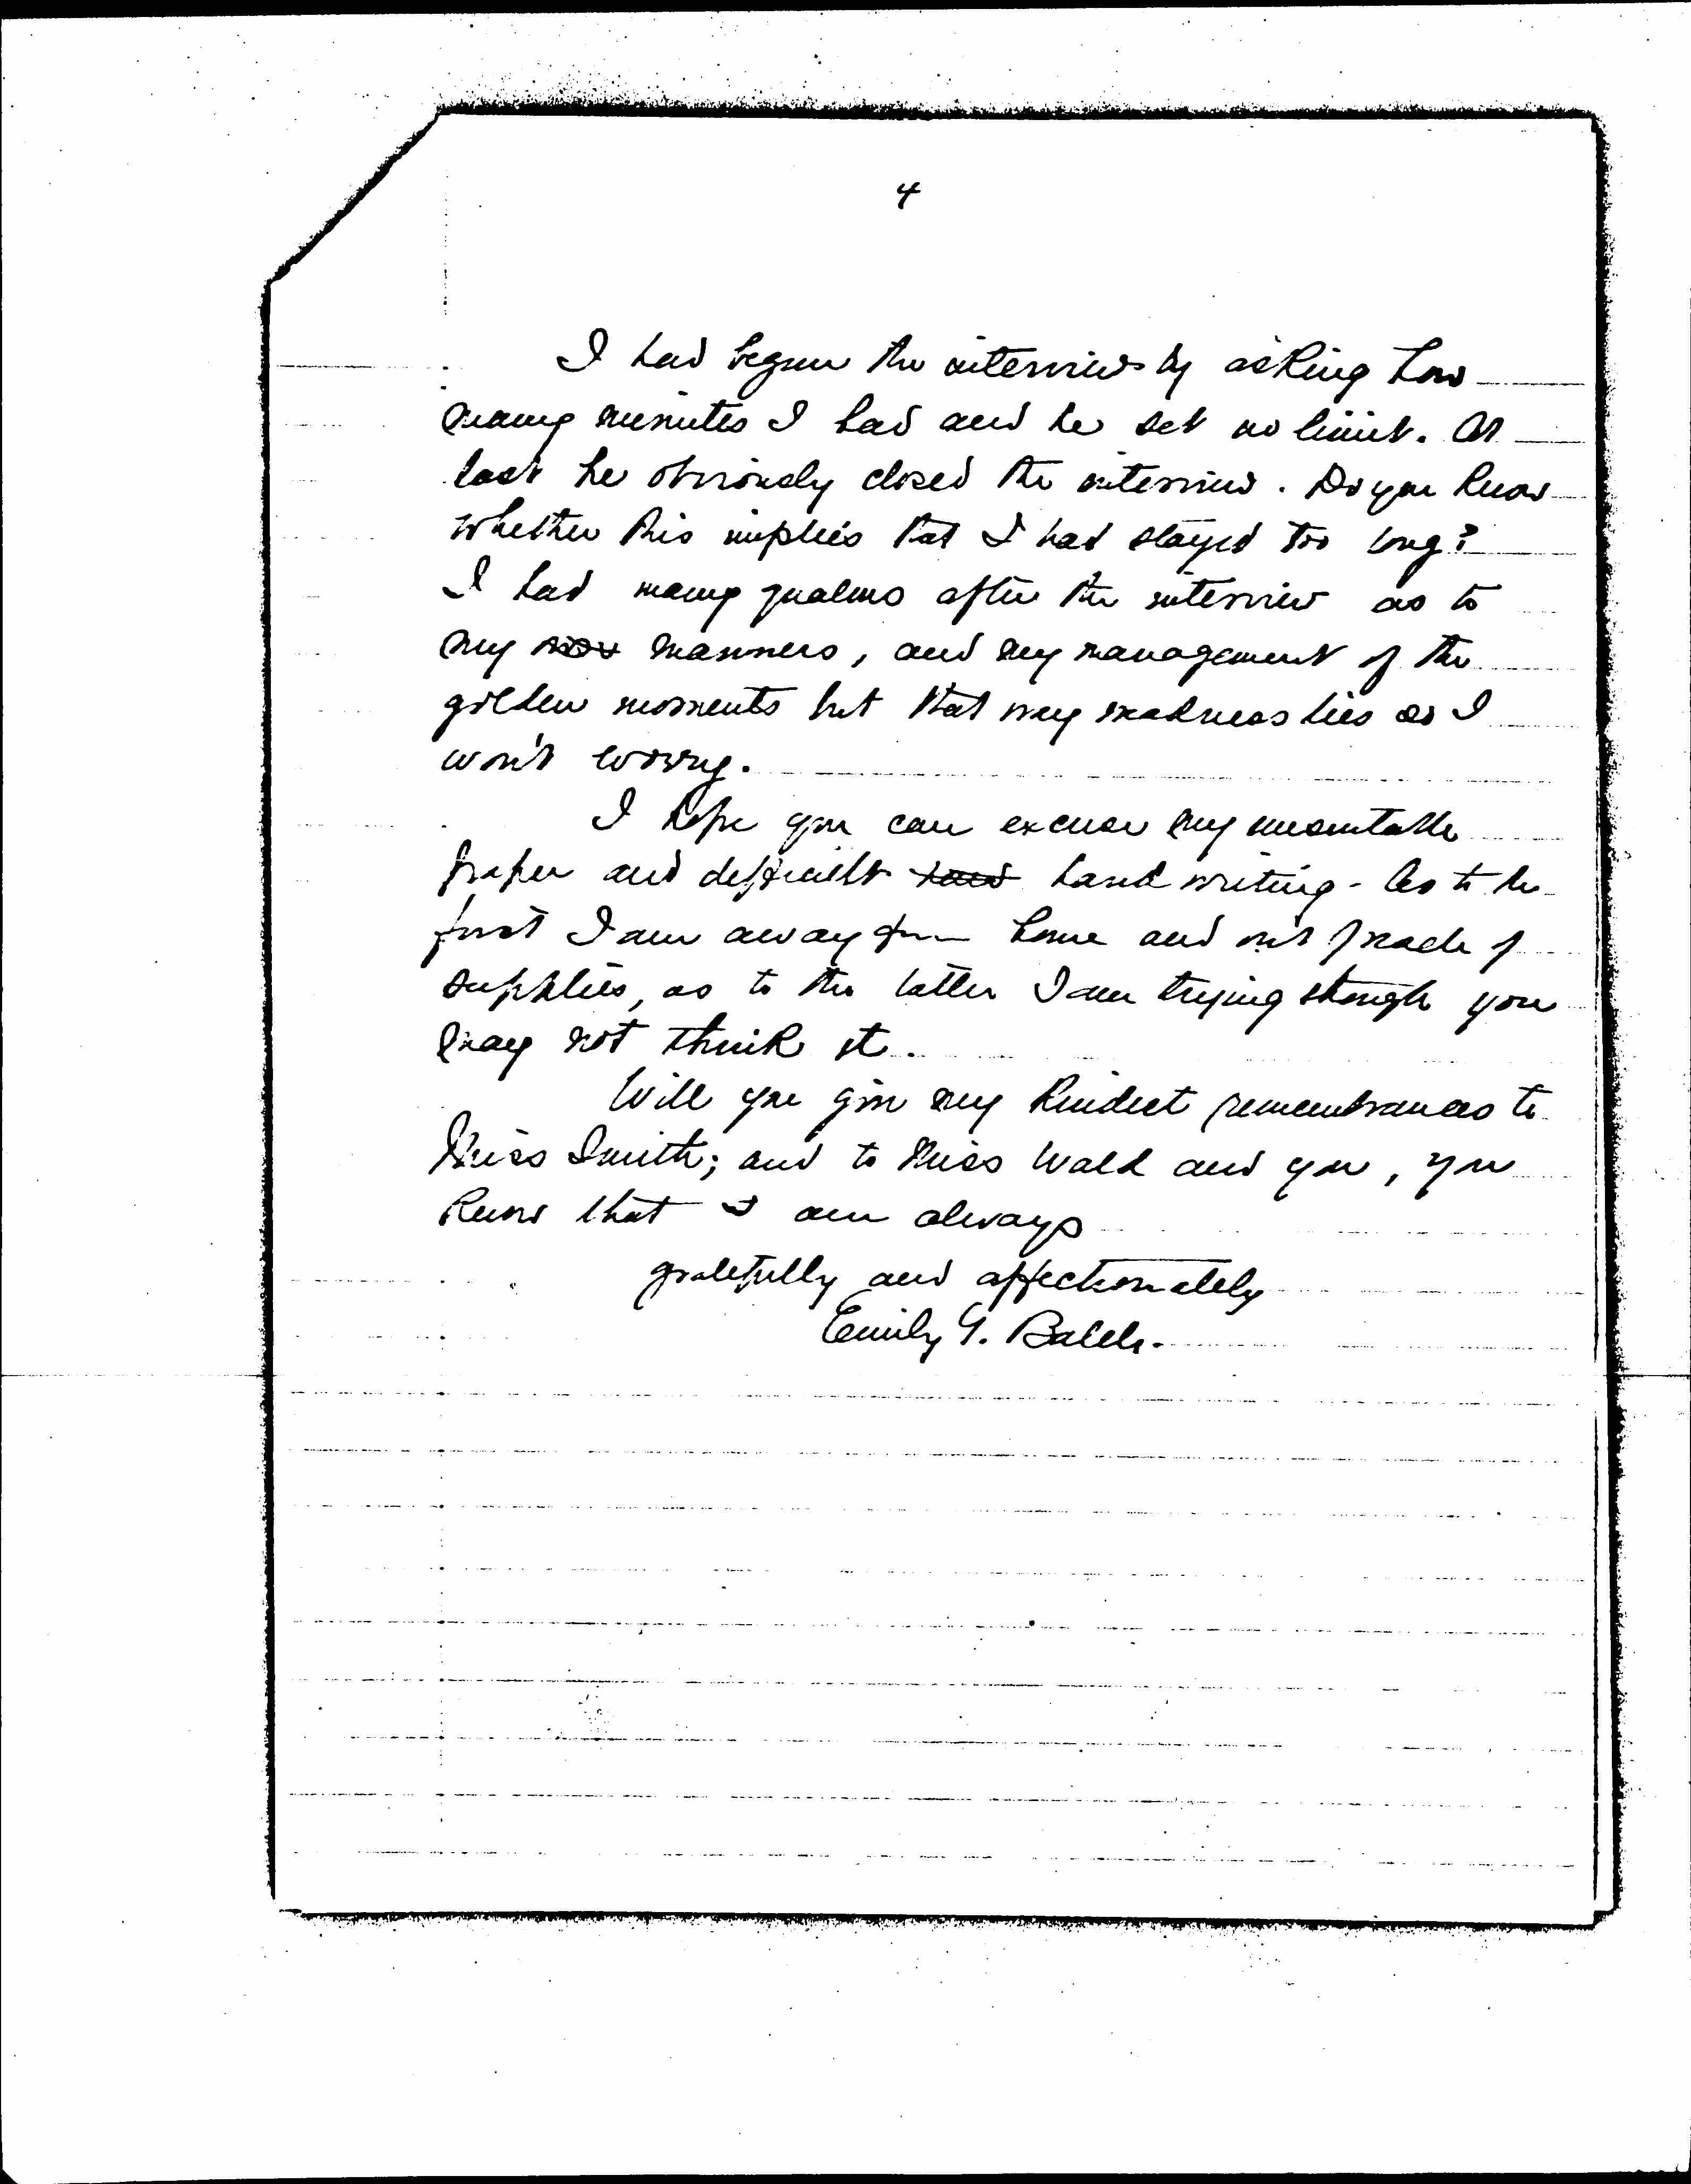 4
I had begun the interview by asking how
many minutes I had and he set no limit. At
last he obviously closed the interview. Do you know
whether this implies that I had stayed too long?
I had many qualms after the interview as to
my manners, and my management of the
golden moments but that way madness lies so I
won't worry.
I hope you can excuse my unsuitable
paper and difficult hand writing - As to the
first I am away from home and out of reach of
supplies, as to the latter I am trying though you
may not think it.
Will you give my kindest remembrances to
Miss Smith; and to Miss Wald and you, you
know that I am always
gratefully and affectionately
Emily G. Balch.